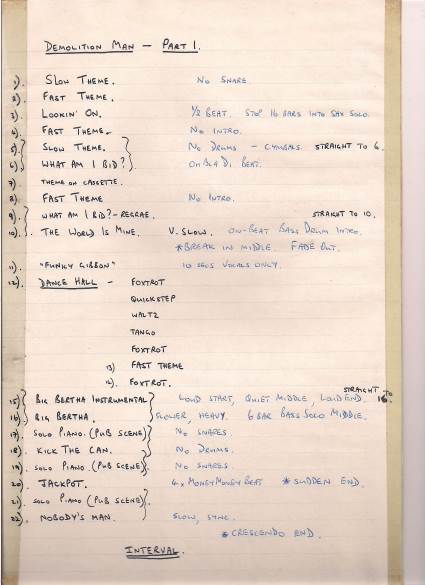 DEMOLITION MAN — PART 1.
1). SLOW THEME. NO SNARE.
2). FAST THEME.
3). LOOKIN' ON. 1/2 BEAT. STOP 16 BARS INTO SAX SOLO.
4). FAST THEME. NO INTRO.
5). SLOW THEME. NO DRUMS - CYMBALS. STRAIGHT TO 6.
6). WHAT AM I BID? OBLA DI BEAT.
7). THEME ON CASSETTE.
8). FAST THEME NO INTRO.
9). WHAT AM I BID? - REGGAE. STRAIGHT TO 10.
10). THE WORLD IS MINE. V. SLOW. ON-BEAT BASS DRUM INTRO.
*BREAK IN MIDDLE. FADE OUT.
11). "FUNKY GIBBON" 10 SEGS VOCALS ONLY.
12). DANCE HALL — FOXTROT
QUICKSTEP
WALTZ
TANGO
FOXTROT
13) FAST THEME
14). FOXTROT.
15) BIG BERTHA INSTRUMENTAL LOUD START, QUIET MIDDLE, LOUD END. STRAIGHT TO 16
16). BIG BERTHA. SLOWER, HEAVY. 6 BAR BASS SOLO MIDDLE.
17). SOLO PIANO. (PUB SCENE) NO SNARES.
18). KICK THE CAN. NO DRUMS.
19). SOLO PIANO. (PUB SCENE) NO SNARES
20). JACKPOT. 4 x MONEY MONEY BEAT * SUDDEN END.
21). SOLO PIANO (PUB SCENE)
22). NOBODY'S MAN. SLOW, SYNC.
* CRESCENDO END.
INTERVAL.